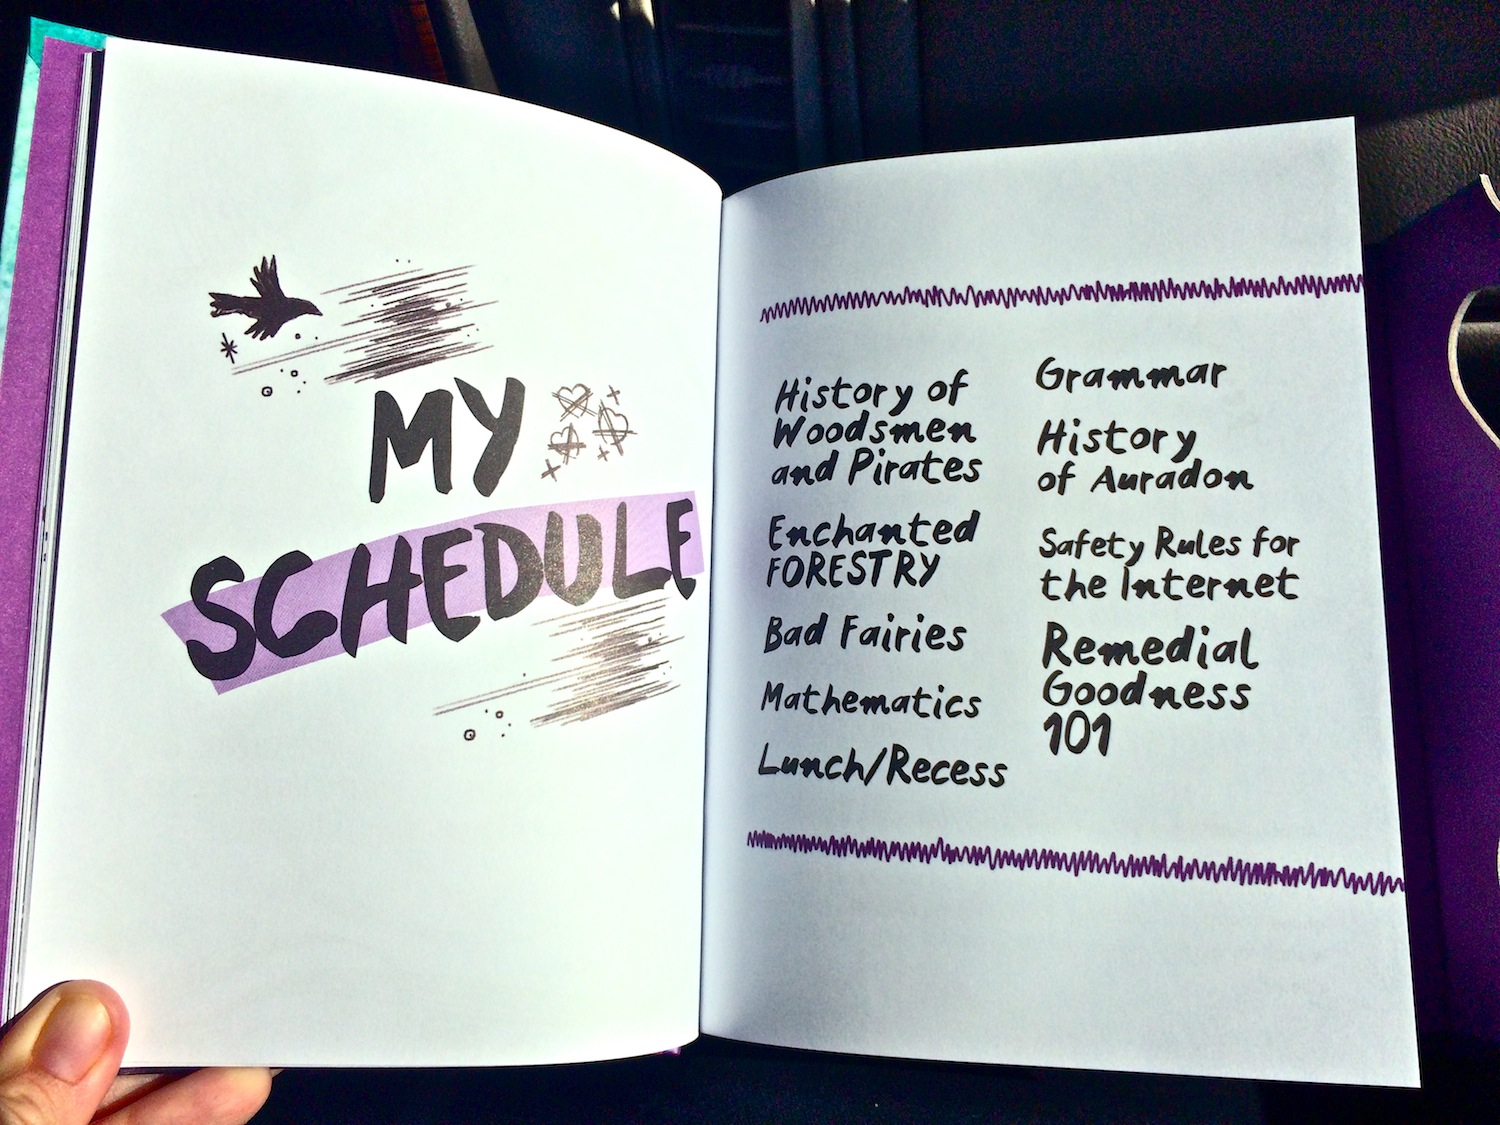 MY
SCHEDULE
History of
Woodsmen
and Pirates
Enchanted
FORESTRY
Bad Fairies
Mathematics
Lunch/Recess
Grammar
History
of Auradon
Safety Rules for
the Internet
Remedial
Goodness
101